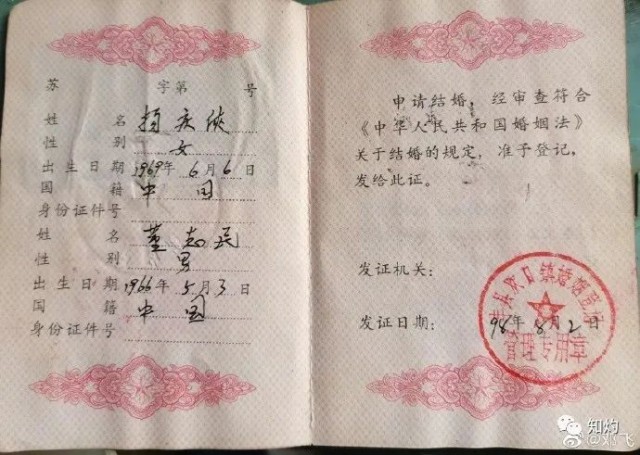 苏 字第 号
姓 名 杨庆侠
性 别 女
出生日期 1969年6月6日
国 籍 中国
身份证件号
姓 名 董志民
性 别 男
出生日期 1966年5月3日
国 籍 中国
身份证件号
申请结婚，经审查符合
《中华人民共和国婚姻法》
关于结婚的规定，准予登记，
发给此证。
发证机关：
发证日期：98年8月2日
管理专用章
知灼